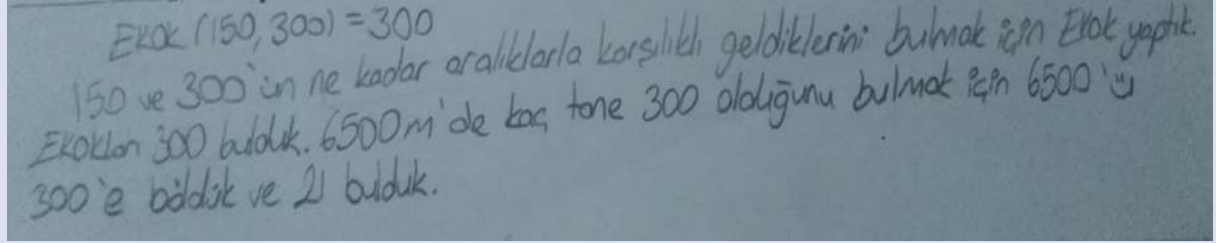 EKOK (150, 300) = 300
150 ve 300'ün ne kadar aralıklarla karşılıklı geldiklerini bulmak için Ekok yaptık.
Ekokları 300 bulduk. 6500m'de kaç tane 300 olduğunu bulmak için 6500'ü
300'e böldük ve 21 bulduk.